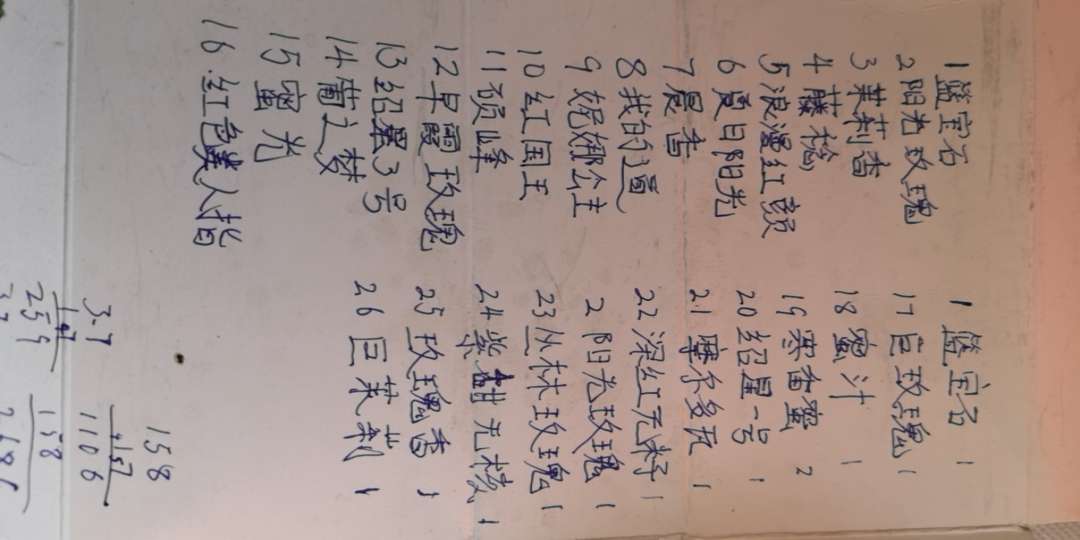 1 蓝宝石
2 阳光玫瑰
3 茉莉香
4 藤稔
5 浪漫红颜
6 夏日阳光
7 晨香
8 我的道
9 妮娜公主
10 红国王
11 顶峰
12 早霞玫瑰
13 绍星3号
14 葡之梦
15 蜜光
16.红色美人指
1 蓝宝石 1
17 巨玫瑰 1
18 蜜汁 1
19 寒香蜜 2
20 绍星一号 1
21 摩尔多瓦 1
22 深红无籽 1
2 阳光玫瑰 1
23 丛林玫瑰 1
24 紫甜无核 1
25 玫瑰香 1
26 巨茉莉 1
3.7
259
158
1106
158